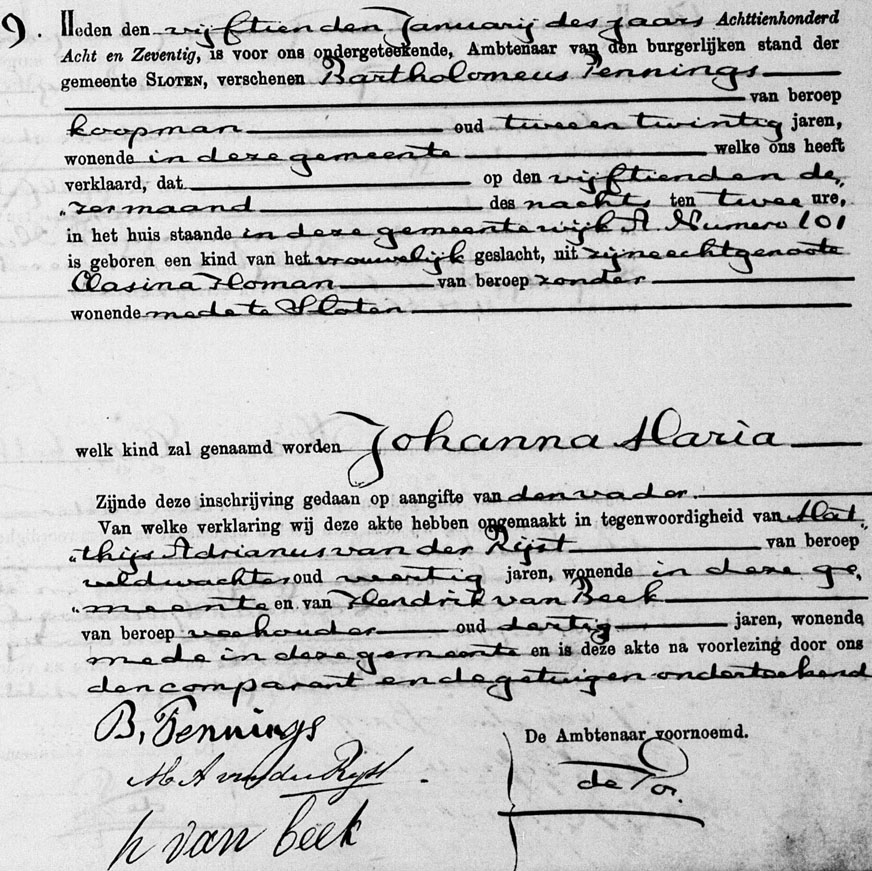 9. Heden den vijftienden Januarij des jaars Achttienhonderd
Acht en Zeventig, is voor ons ondergeteekende, Ambtenaar van den burgerlijken stand der
gemeente SLOTEN, verschenen Bartholomeus Pennings
van beroep
koopman oud twee en twintig jaren,
wonende in deze gemeente welke ons heeft
verklaard, dat op den vijftienden de,
"zer maand des nachts ten twee ure,
in het huis staande in deze gemeente wijk A. Numero 101
is geboren een kind van het vrouwelijk geslacht, uit zijne echtgenoote
Clasina Homan van beroep zonder
wonende mede te Sloten
welk kind zal genaamd worden Johanna Maria
Zijnde deze inschrijving gedaan op aangifte van den vader.
Van welke verklaring wij deze akte hebben opgemaakt in tegenwoordigheid van Mat,
"thijs Adrianus van der Rijst van beroep
veldwachter oud veertig jaren, wonende in deze ge,
"meente en van Hendrik van Beek
van beroep veehouder oud dertig jaren, wonende
mede in deze gemeente en is deze akte na voorlezing door ons
den comparant en de getuigen onderteekend
B, Pennings
De Ambtenaar voornoemd.
M A van der Rijst
h van beek